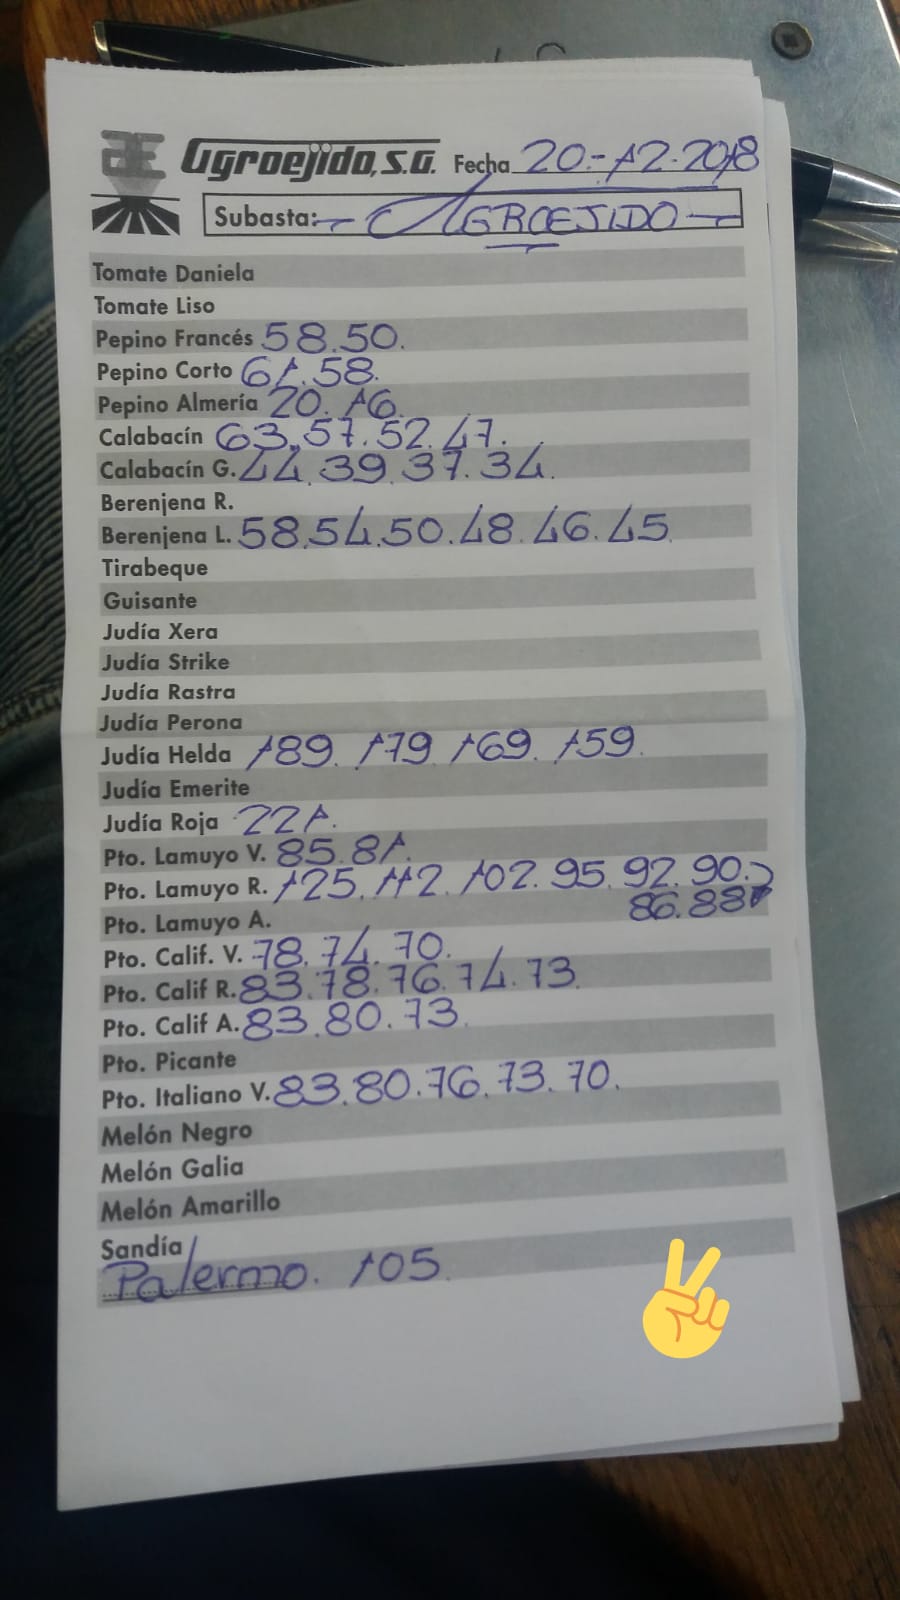 Agroejido, S.A. Fecha 20-12-2018
Subasta: AGROEJIDO
Tomate Daniela
Tomate Liso
Pepino Francés 58.50.
Pepino Corto 61.58.
Pepino Almería 20.16.
Calabacín 63.57.52.47.
Calabacín G. 44.39.37.34.
Berenjena R.
Berenjena L. 58.54.50.48.46.45.
Tirabeque
Guisante
Judía Xera
Judía Strike
Judía Rastra
Judía Perona
Judía Helda 189.179.169.159.
Judía Emerite
Judía Roja 221.
Pto. Lamuyo V. 85.81.
Pto. Lamuyo R. 125.112.102.95.92.90.
86.88
Pto. Lamuyo A.
Pto. Calif. V. 78.74.70.
Pto. Calif R. 83.78.76.74.73.
Pto. Calif A. 83.80.73.
Pto. Picante
Pto. Italiano V. 83.80.76.73.70.
Melón Negro
Melón Galia
Melón Amarillo
Sandía
Palermo. 105.